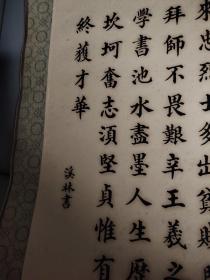 來忠烈士多出寒
拜師不畏艱辛王羲之
學書池水盡墨人生歷
坎坷奮志須堅貞惟有
終獲才華
溪林書